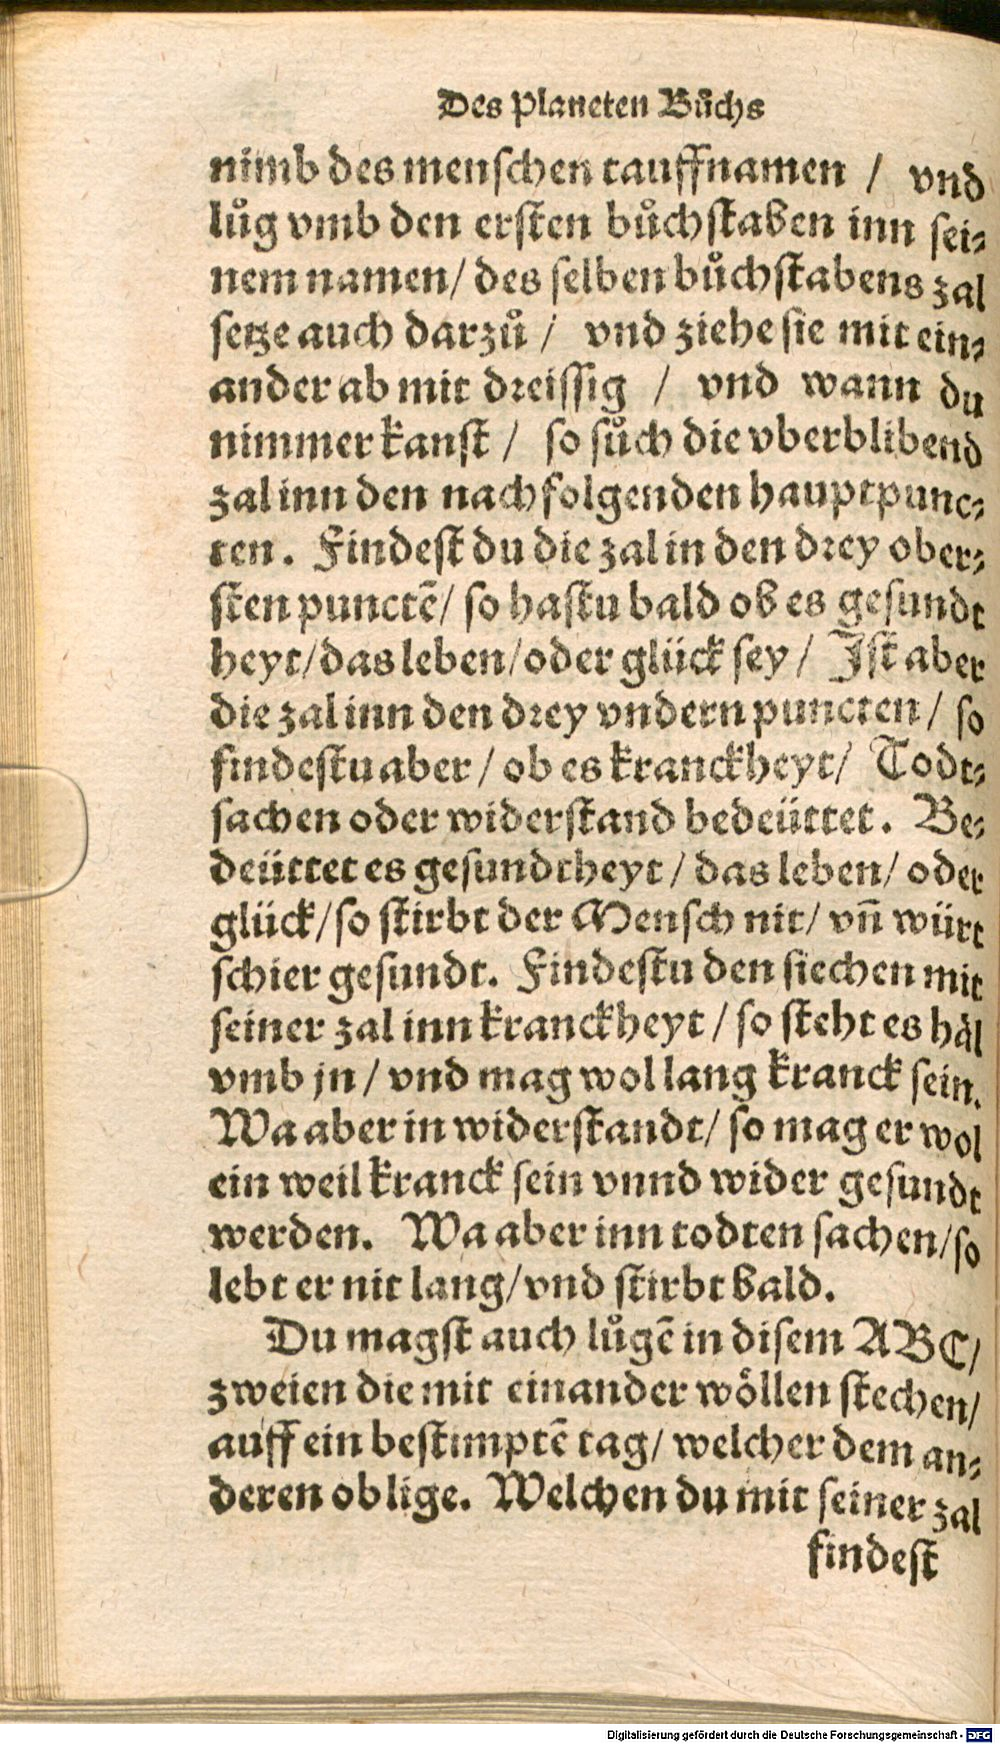 Des Planeten Bůchs
nimb des menſchen tauffnamen / vnd
lůg vmb den erſten bůchſtaben inn ſei⸗
nem namen/ des ſelben bůchſtabens zal
ſetze auch darzů / vnd ziehe ſie mit ein⸗
ander ab mit dꝛeiſſig / vnd wann du
nimmer kanſt / ſo ſůch die vberblibend
zal inn den nachfolgenden hauptpunc⸗
ten. Findeſt du die zal in den dꝛey ober⸗
ſten punctē/ ſo haſtu bald ob es geſundt
heyt/das leben/oder glück ſey/ Iſt aber
die zal inn den dꝛey vndern puncten / ſo
findeſtu aber / ob es kranckheyt/ Todt⸗
ſachen oder widerſtand bedeüttet. Be⸗
deüttet es geſundtheyt / das leben/ oder
glück/ſo ſtirbt der Menſch nit/ vn̄ würt
ſchier geſundt. Findeſtu den ſiechen mit
ſeiner zal inn kranckheyt / ſo ſteht es häl
vmb jn / vnd mag wol lang kranck ſein.
Wa aber in widerſtandt/ ſo mag er wol
ein weil kranck ſein vnnd wider geſundt
werden. Wa aber inn todten ſachen/ſo
lebt er nit lang/vnd ſtirbt bald.
Du magſt auch lůgē in diſem ABC/
zweien die mit einander wöllen ſtechen/
auff ein beſtimptē tag/ welcher dem an⸗
deren oblige. Welchen du mit ſeiner zal
findeſt
Digitalisierung gefördert durch die Deutsche Forschungsgemeinschaft - DFG